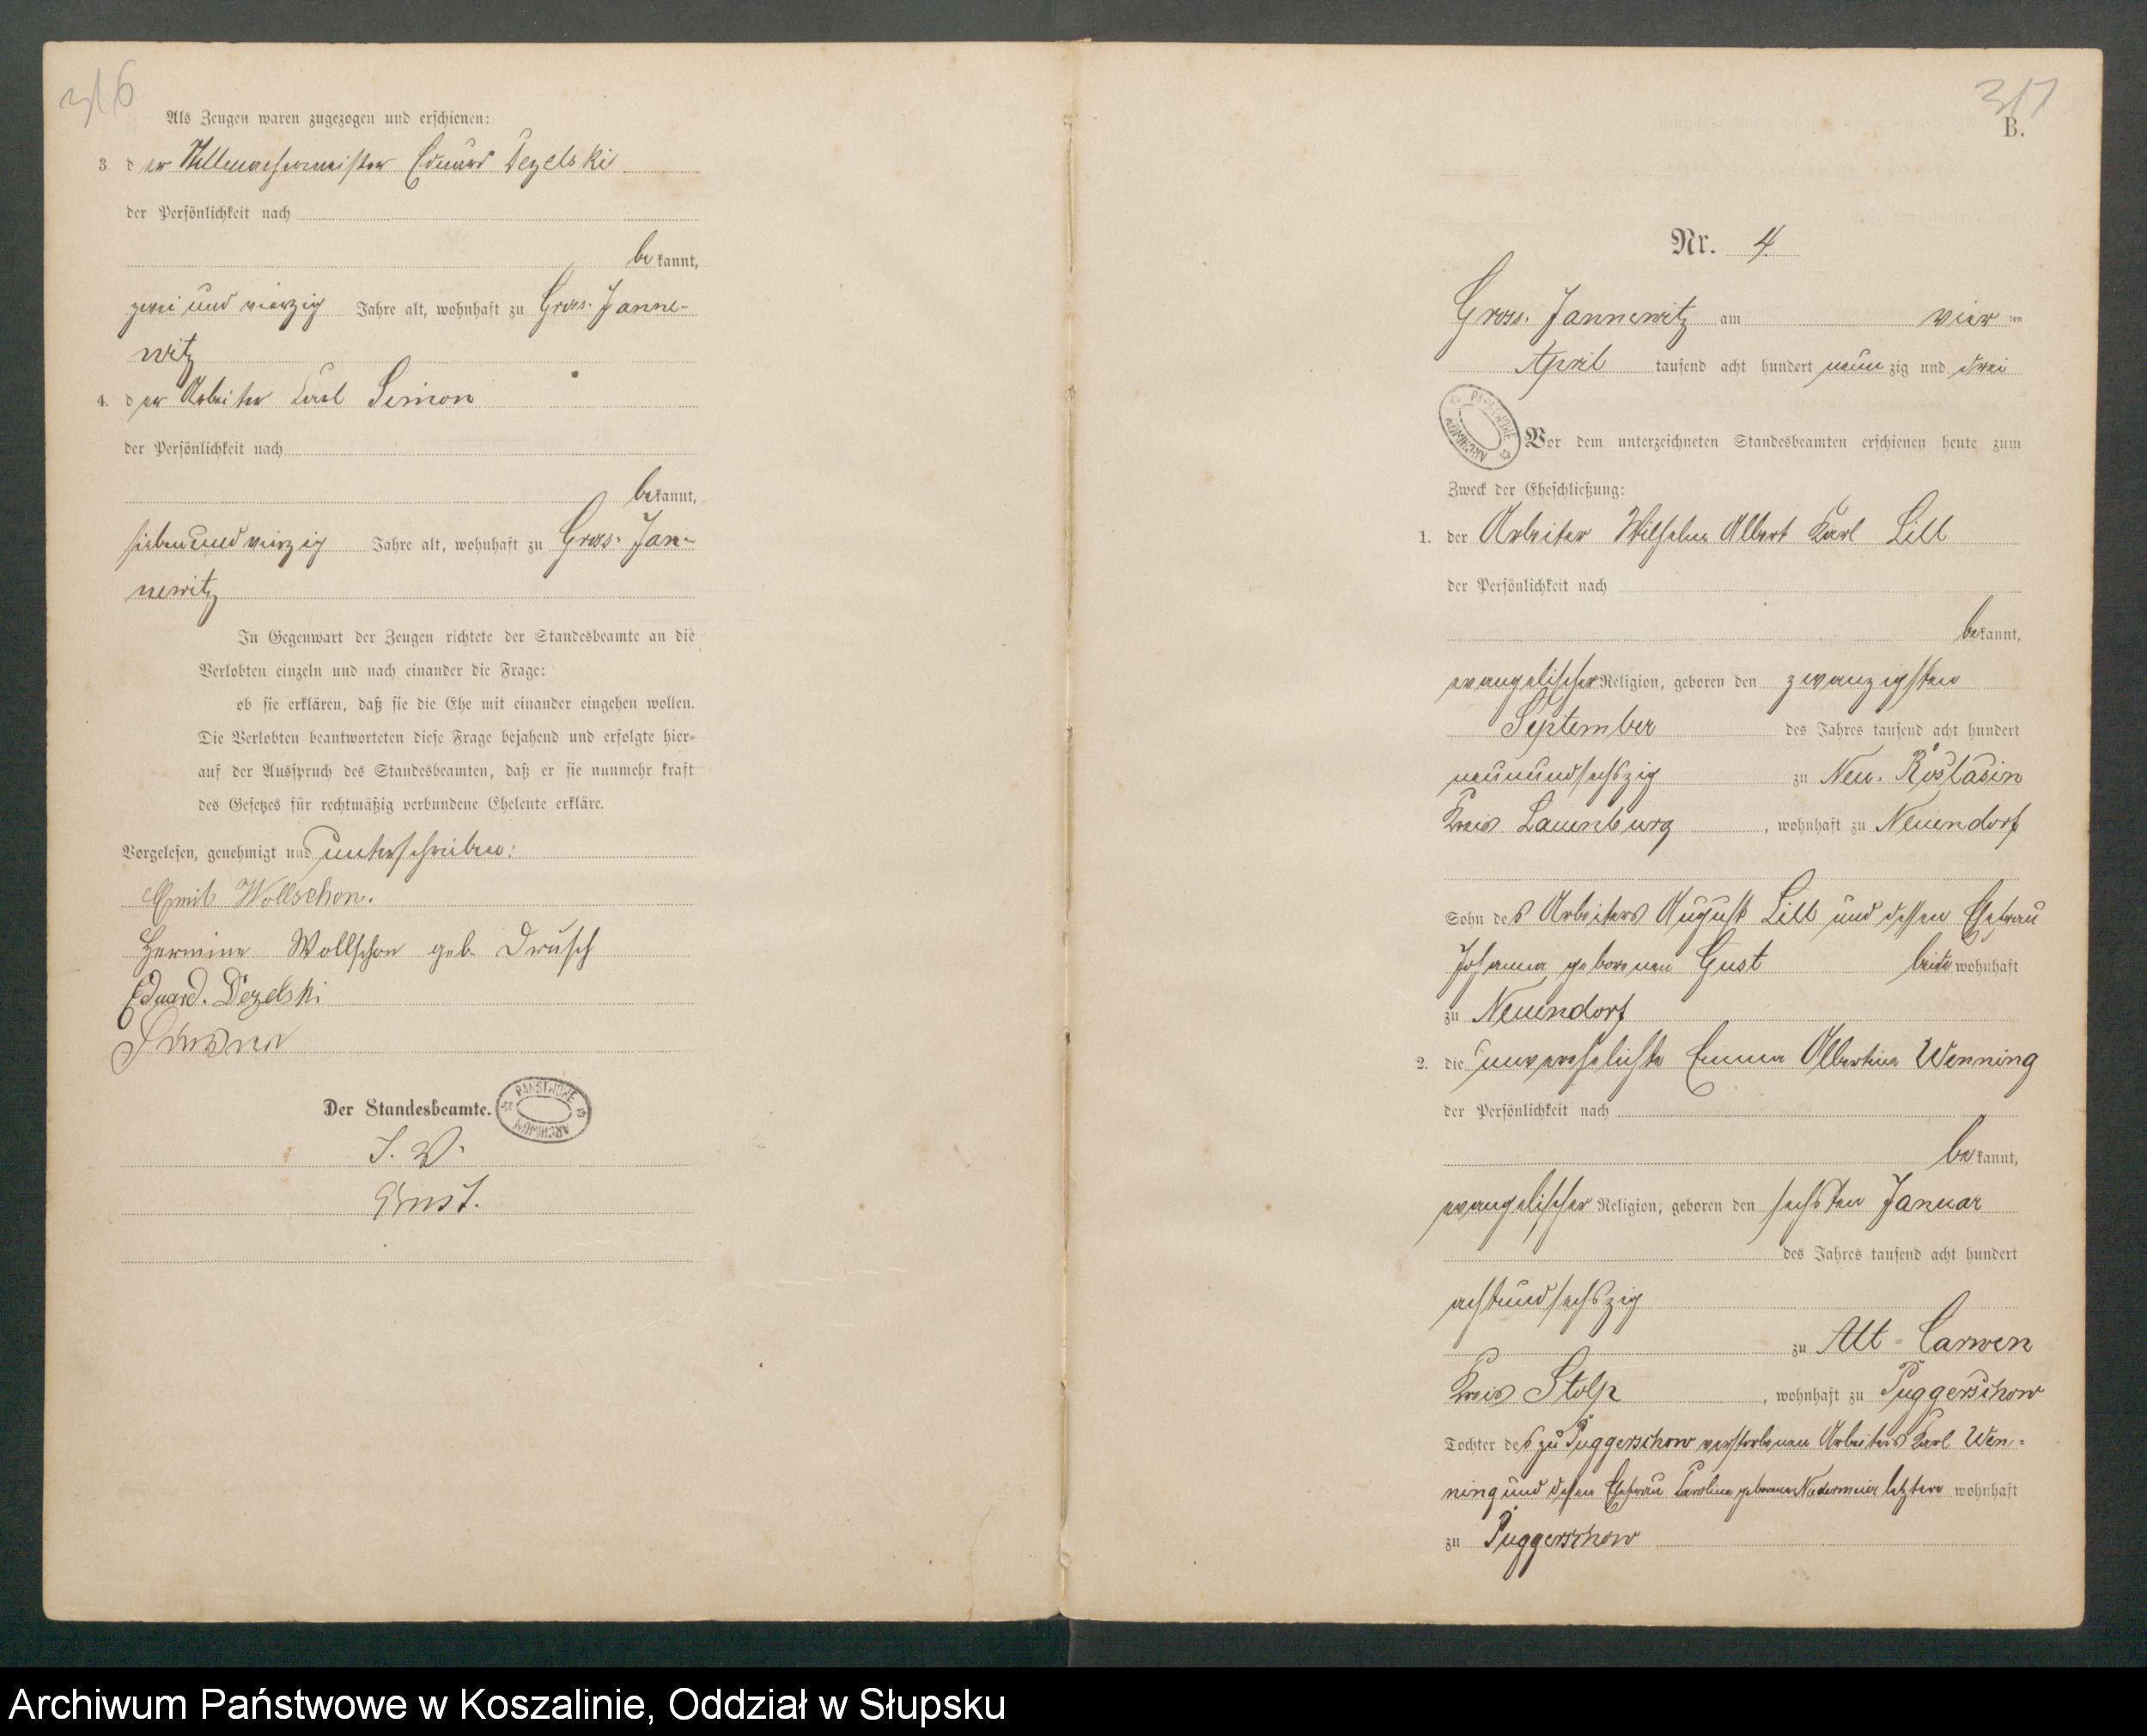 316
Als Zeugen waren zugezogen und erschienen:
3. der Stellmachermeister Eduard Dezelski
der Persönlichkeit nach
bekannt,
zwei und vierzig Jahre alt, wohnhaft zu Gross-Janne-
witz
4. der Arbeiter Karl Simon
der Persönlichkeit nach
bekannt,
siebenundvierzig Jahre alt, wohnhaft zu Gross-Jan-
newitz
In Gegenwart der Zeugen richtete der Standesbeamte an die
Verlobten einzeln und nach einander die Frage:
ob sie erklären, daß sie die Ehe mit einander eingehen wollen.
Die Verlobten beantworteten diese Frage bejahend und erfolgte hier-
auf der Ausspruch des Standesbeamten, daß er sie nunmehr kraft
des Gesetzes für rechtmäßig verbundene Eheleute erkläre.
Vorgelesen, genehmigt und unterschrieben:
Emil Wollschon.
Hermine Wollschon geb. Drusch
Eduard. Dezelski
Der Standesbeamte.
PAŃSTWOWE ARCHIWUM
I. V.
Ernst.
317
B.
Nr. 4.
Gross-Jannewitz am vier ten
April tausend acht hundert neunzig und drei
PAŃSTWOWE ARCHIWUM
Vor dem unterzeichneten Standesbeamten erschienen heute zum
Zweck der Eheschließung:
1. der Arbeiter Wilhelm Albert Karl Lill
der Persönlichkeit nach
bekannt,
evangelischer Religion, geboren den zwanzigsten
September des Jahres tausend acht hundert
neunundsechszig zu Neu-Roslasin
Kreis Lauenburg, wohnhaft zu Neuendorf
Sohn des Arbeiters August Lill und dessen Ehefrau
Johanna geborenen Gust beide wohnhaft
zu Neuendorf
2. die unverehelichte Emma Albertine Wenning
der Persönlichkeit nach
bekannt,
evangelischer Religion, geboren den sechsten Januar
des Jahres tausend acht hundert
achtundsechszig
zu Alt-Carwen
Kreis Stolp, wohnhaft zu Puggerschow
Tochter des zu Puggerschow verstorbenen Arbeiters Karl Wen-
ning und dessen Ehefrau Karoline geborenen Niedermeier letztere wohnhaft
zu Puggerschow
Archiwum Państwowe w Koszalinie, Oddział w Słupsku